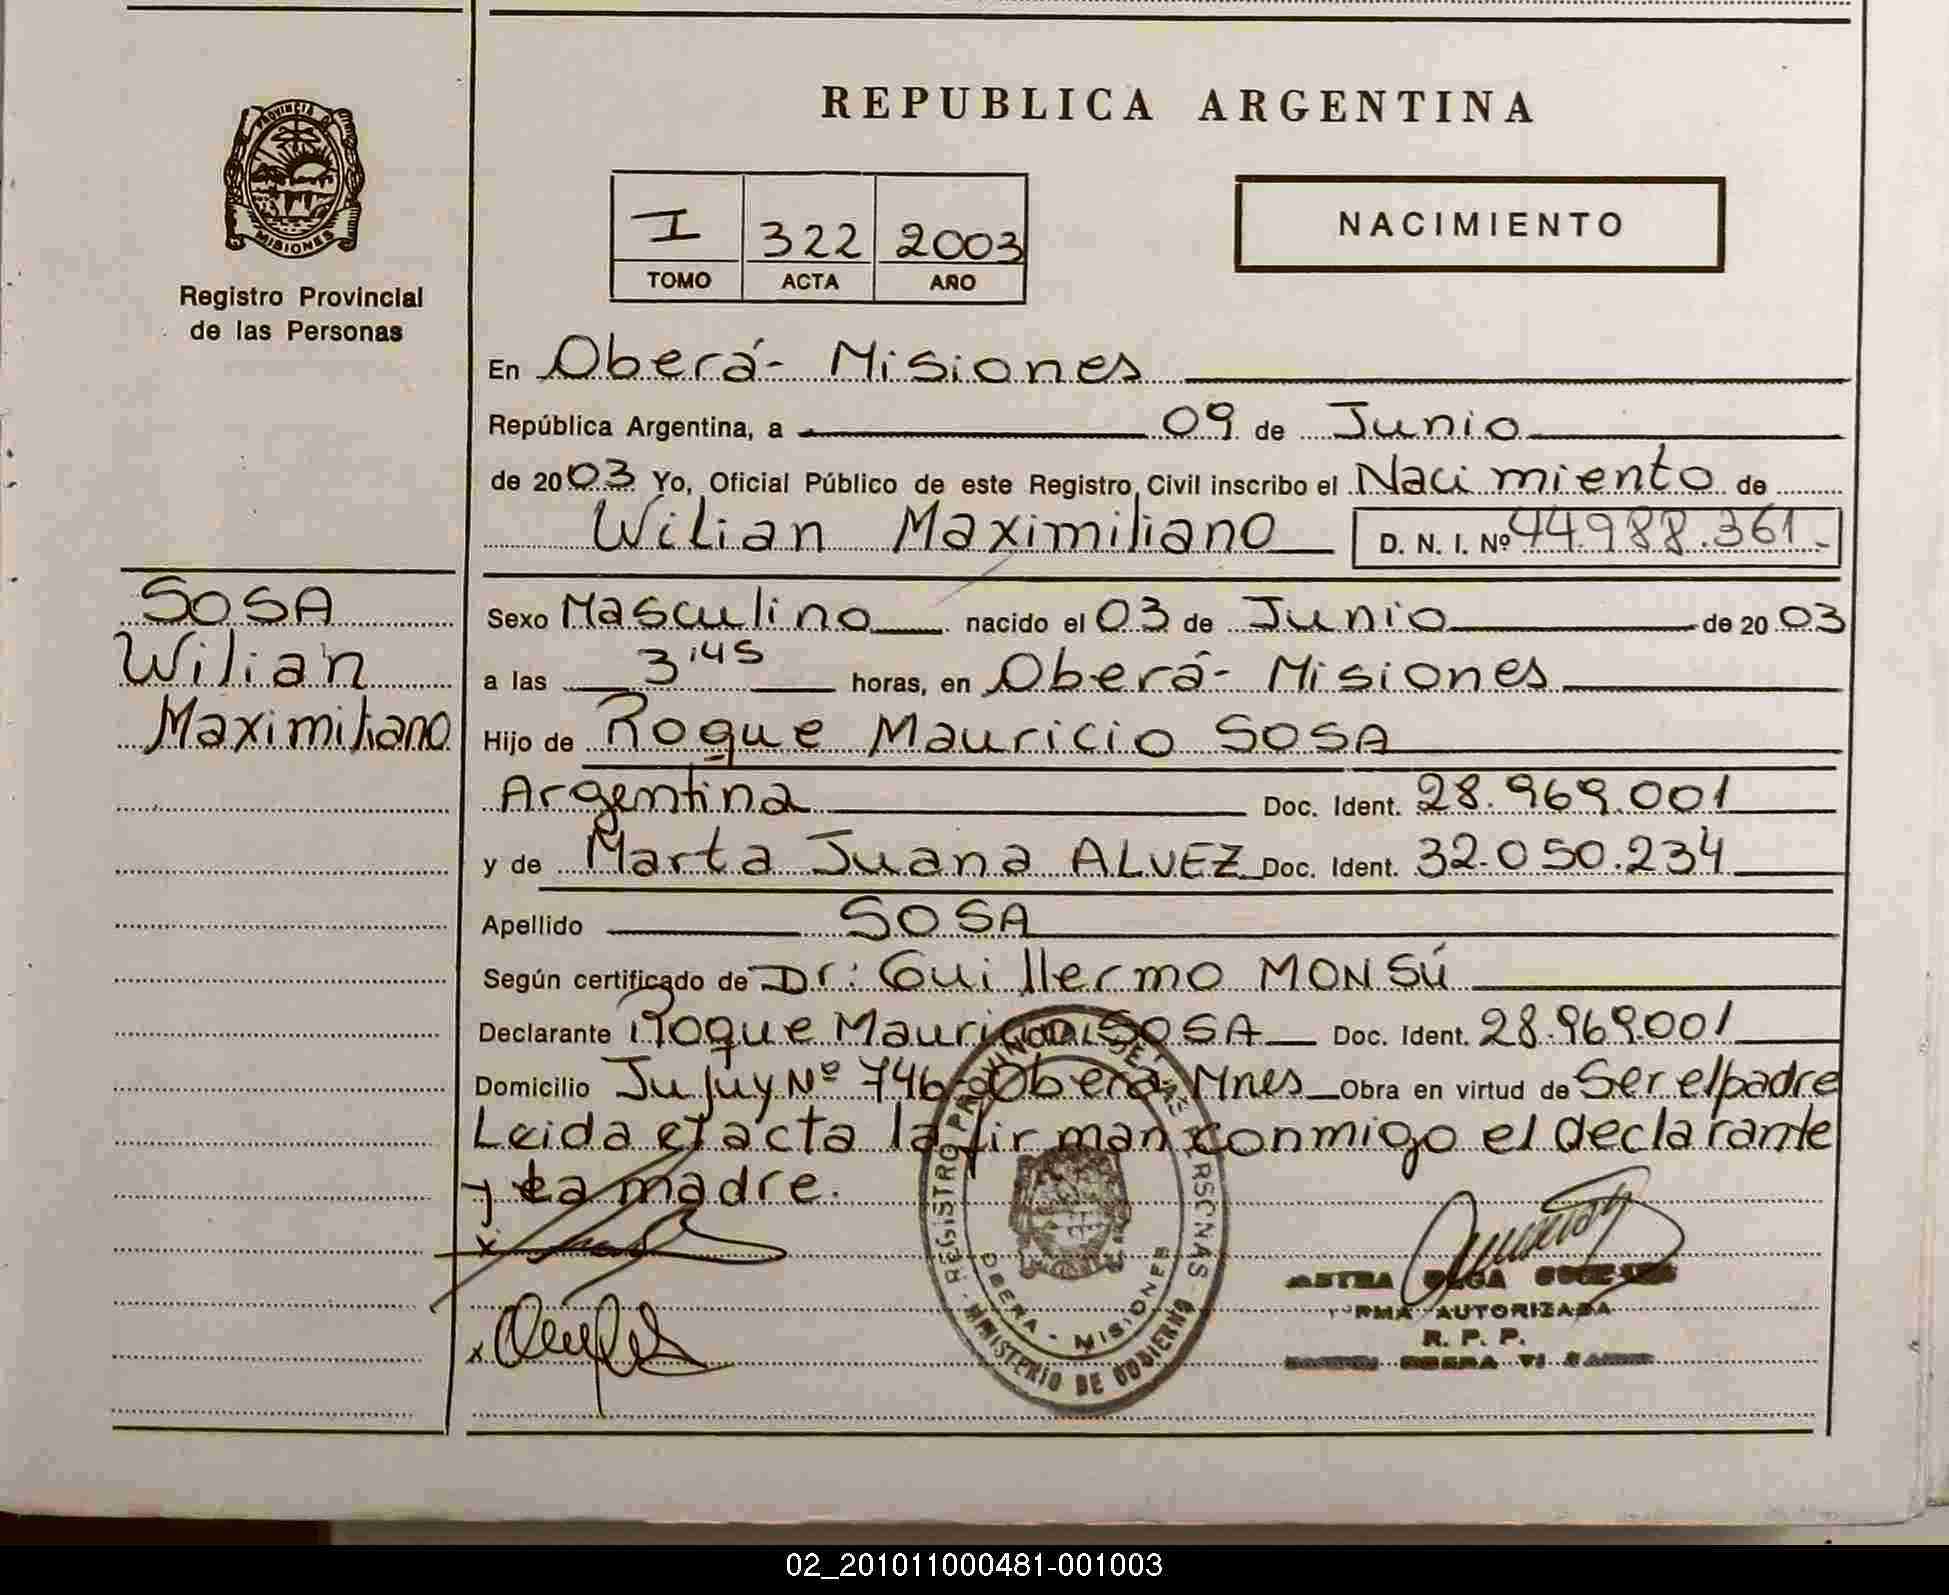 REPUBLICA ARGENTINA
PROVINCIA DE
MISIONES
Registro Provincial
de las Personas
I 322 2003
TOMO ACTA AÑO
NACIMIENTO
En Oberá- Misiones
República Argentina, a 09 de Junio
de 2003 Yo, Oficial Público de este Registro Civil inscribo el Nacimiento de
Wilian Maximiliano D. N. I. Nº 44.988.361.-
SOSA
Wilian
Maximiliano
Sexo Masculino nacido el 03 de Junio de 2003
a las 3'45 horas, en Oberá- Misiones
Hijo de Roque Mauricio SOSA
Argentina Doc. Ident. 28.969.001
y de Marta Juana ALVEZ Doc. Ident. 32.050.234
Apellido SOSA
Según certificado de Dr: Guillermo MONSÚ
Declarante Roque Mauricio SOSA Doc. Ident. 28.969.001
Domicilio Jujuy Nº 746-Oberá-Mnes Obra en virtud de Ser el padre
Leida el acta la firman conmigo el declarante
y la madre.
x
x
REGISTRO PROVINCIAL DE LAS PERSONAS
OBERA - MISIONES
MINISTERIO DE GOBIERNO
OLGA
FIRMA AUTORIZADA
R. P. P.
OBERA
02_201011000481-001003